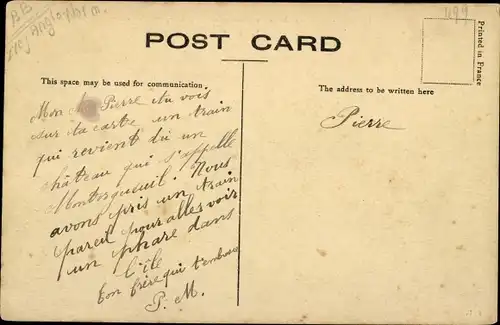 BB
499
Printed in France
POST CARD
This space may be used for communication
The address to be written here
Mon Pierre tu vois
sur ta carte un train
qui revient du un
château qui s'appelle
Montorgueuil. Nous
avons pris un train
pareil pour alles voir
un phare dans
l'île
ton frère qui t'embrasse
P. M.
Pierre